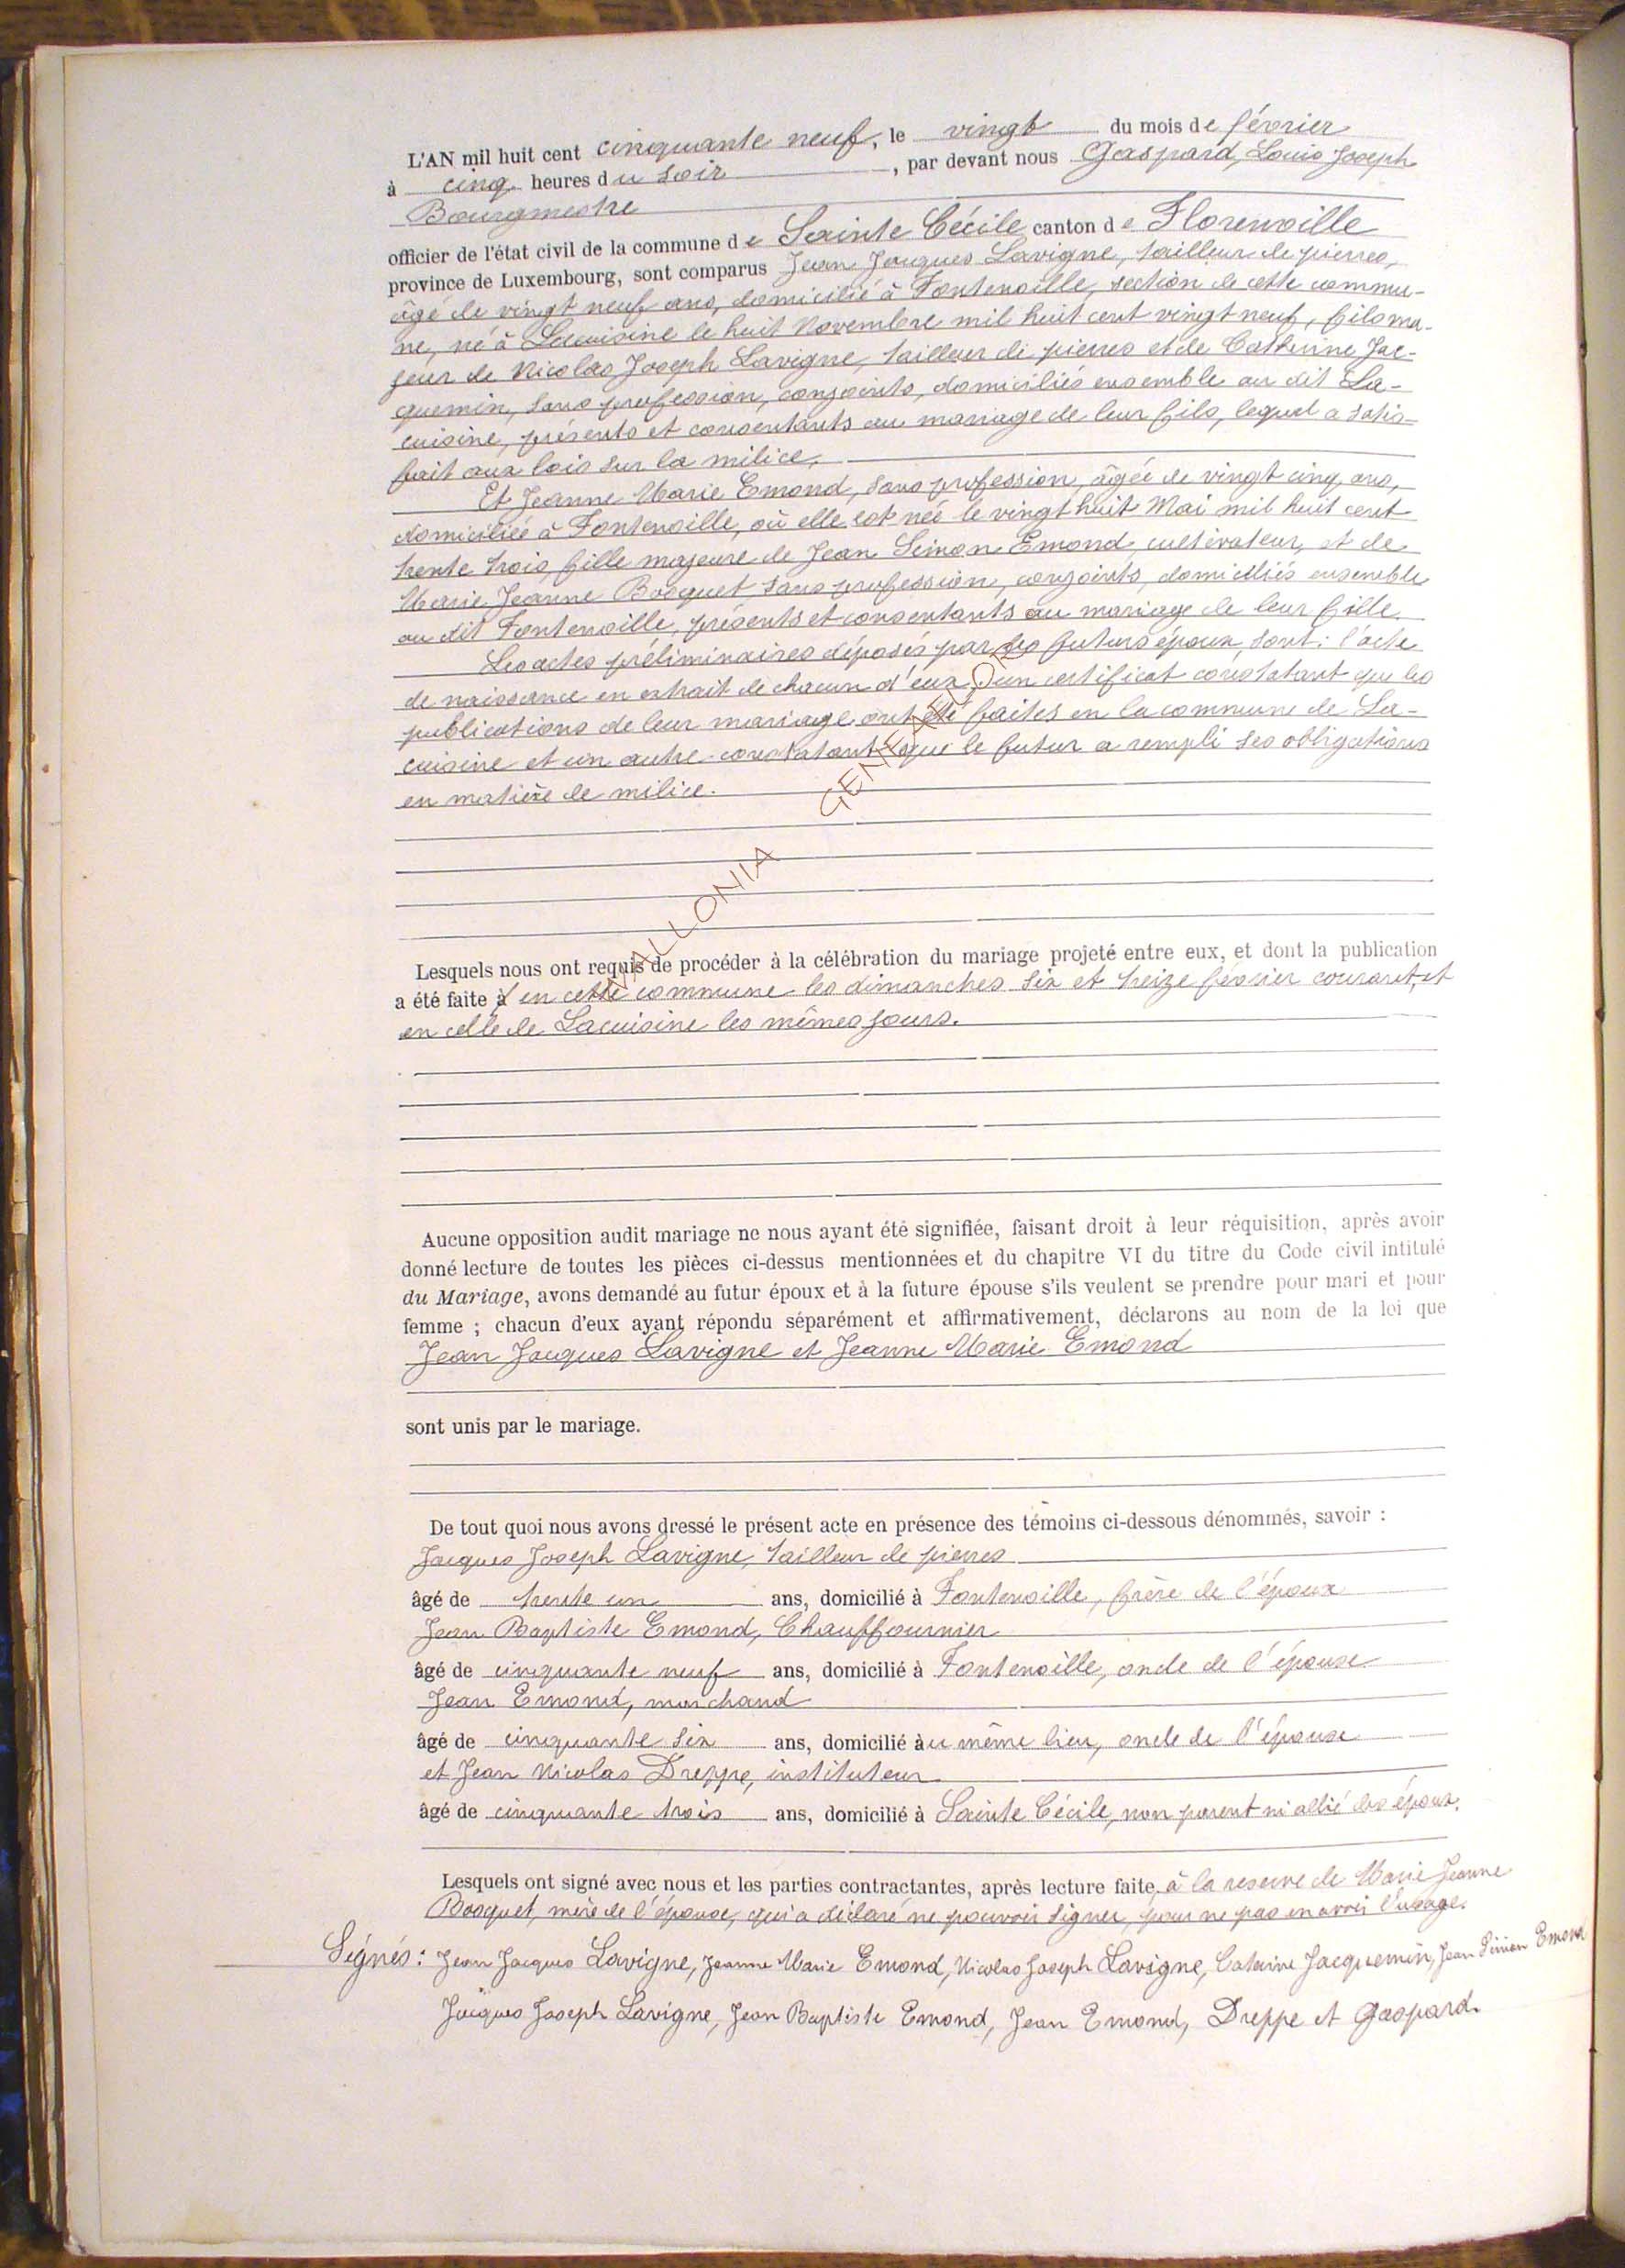 L'AN mil huit cent cinquante neuf, le vingt du mois de février
à cinq heures du soir, par devant nous Gaspard, Louis Joseph
Bourgmestre
officier de l'état civil de la commune de Sainte Cécile canton de Florenville
province de Luxembourg, sont comparus Jean Jacques Lavigne, tailleur de pierres,
âgé de vingt neuf ans, domicilié à Fontenoille, section de cette commu-
ne, né à Lacuisine le huit Novembre mil huit cent vingt neuf, fils ma-
jeur de Nicolas Joseph Lavigne, tailleur de pierres et de Catherine Jac-
quemin, sans profession, conjoints, domiciliés ensemble au dit La-
cuisine, présents et consentants au mariage de leur fils, lequel a satis-
fait aux lois sur la milice,
Et Jeanne Marie Emond, sans profession, âgée de vingt cinq ans,
domiciliée à Fontenoille, où elle est née le vingt huit Mai mil huit cent
trente trois, fille majeure de Jean Simon Emond, cultivateur, et de
Marie Jeanne Bosquet sans profession, conjoints, domiciliés ensemble
au dit Fontenoille, présents et consentants au mariage de leur fille.
Les actes préliminaires déposés par les futurs époux sont: l'acte
de naissance en extrait de chacun d'eux, un certificat constatant que les
publications de leur mariage ont été faites en la commune de La-
cuisine et un autre constatant que le futur a rempli ses obligations
en matière de milice.
WALLONIA GENEALOR
Lesquels nous ont requis de procéder à la célébration du mariage projeté entre eux, et dont la publication
a été faite à en cette commune les dimanches six et treize février courant, et
en celle de Lacuisine les mêmes jours.
Aucune opposition audit mariage ne nous ayant été signifiée, faisant droit à leur réquisition, après avoir
donné lecture de toutes les pièces ci-dessus mentionnées et du chapitre VI du titre du Code civil intitulé
du Mariage, avons demandé au futur époux et à la future épouse s'ils veulent se prendre pour mari et pour
femme ; chacun d'eux ayant répondu séparément et affirmativement, déclarons au nom de la loi que
Jean Jacques Lavigne et Jeanne Marie Emond
sont unis par le mariage.
De tout quoi nous avons dressé le présent acte en présence des témoins ci-dessous dénommés, savoir :
Jacques Joseph Lavigne, tailleur de pierres
âgé de trente un ans, domicilié à Fontenoille, frère de l'époux
Jean Baptiste Emond, Chauffournier
âgé de cinquante neuf ans, domicilié à Fontenoille, oncle de l'épouse
Jean Emond, marchand
âgé de cinquante six ans, domicilié àu même lieu, oncle de l'épouse
et Jean Nicolas Dreppe, instituteur
âgé de cinquante trois ans, domicilié à Sainte Cécile, non parent ni allié des époux.
Lesquels ont signé avec nous et les parties contractantes, après lecture faite, à la reserve de Marie Jeanne
Bosquet, mère de l'épouse, qui a déclaré ne pouvoir signer, pour ne pas en avoir l'usage.
Signés: Jean Jacques Lavigne, Jeanne Marie Emond, Nicolas Joseph Lavigne, Caterine Jacquemin, Jean Simon Emond
Jacques Joseph Lavigne, Jean Baptiste Emond, Jean Emond, Dreppe et Gaspard.